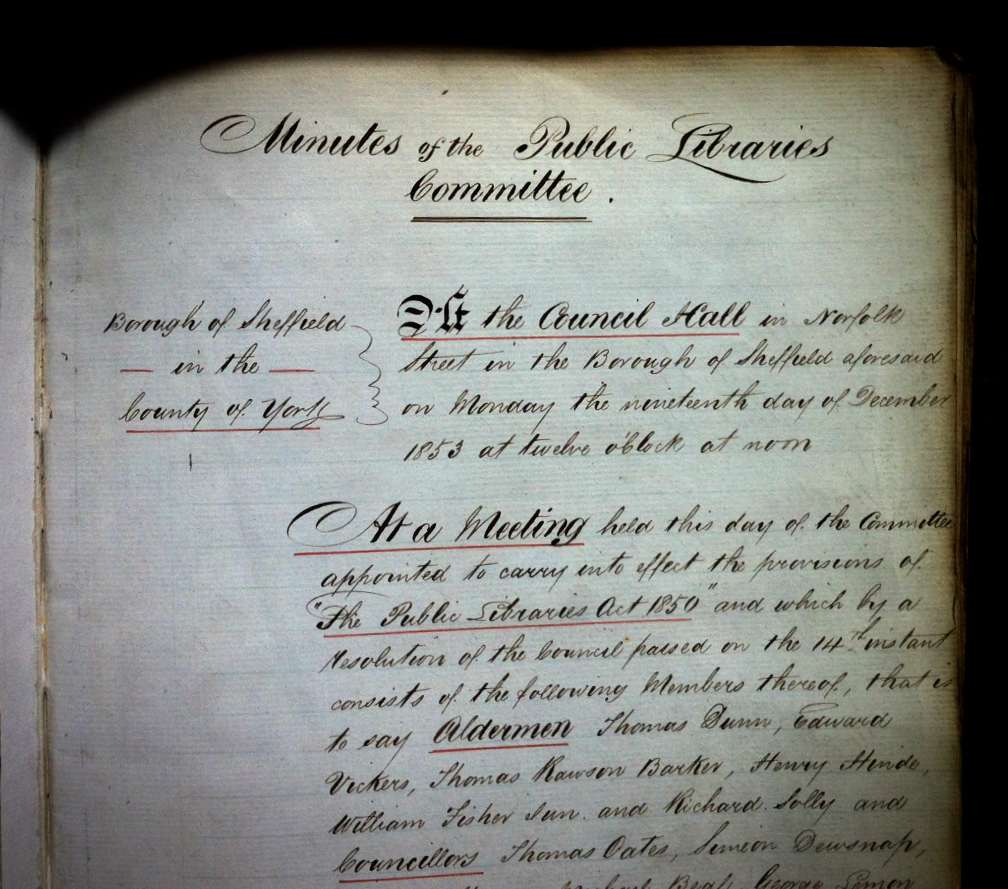 Minutes of the Public Libraries
Committee.
Borough of Sheffield
in the
County of York
At the Council Hall in Norfolk
Street in the Borough of Sheffield aforesaid
on Monday the nineteenth day of December
1853 at twelve o'Clock at noon
At a Meeting held this day of the Committee
appointed to carry into effect the provisions of
"The Public Libraries Act 1850" and which by a
resolution of the Council passed on the 14th instant
consists of the following Members thereof, that is
to say Aldermen Thomas Dunn, Edward
Vickers, Thomas Rawson Barker, Henry Hinde,
William Fisher Jun. and Richard Solly and
Councillors Thomas Oates, Simeon Dewsnap,
Michael Beal George